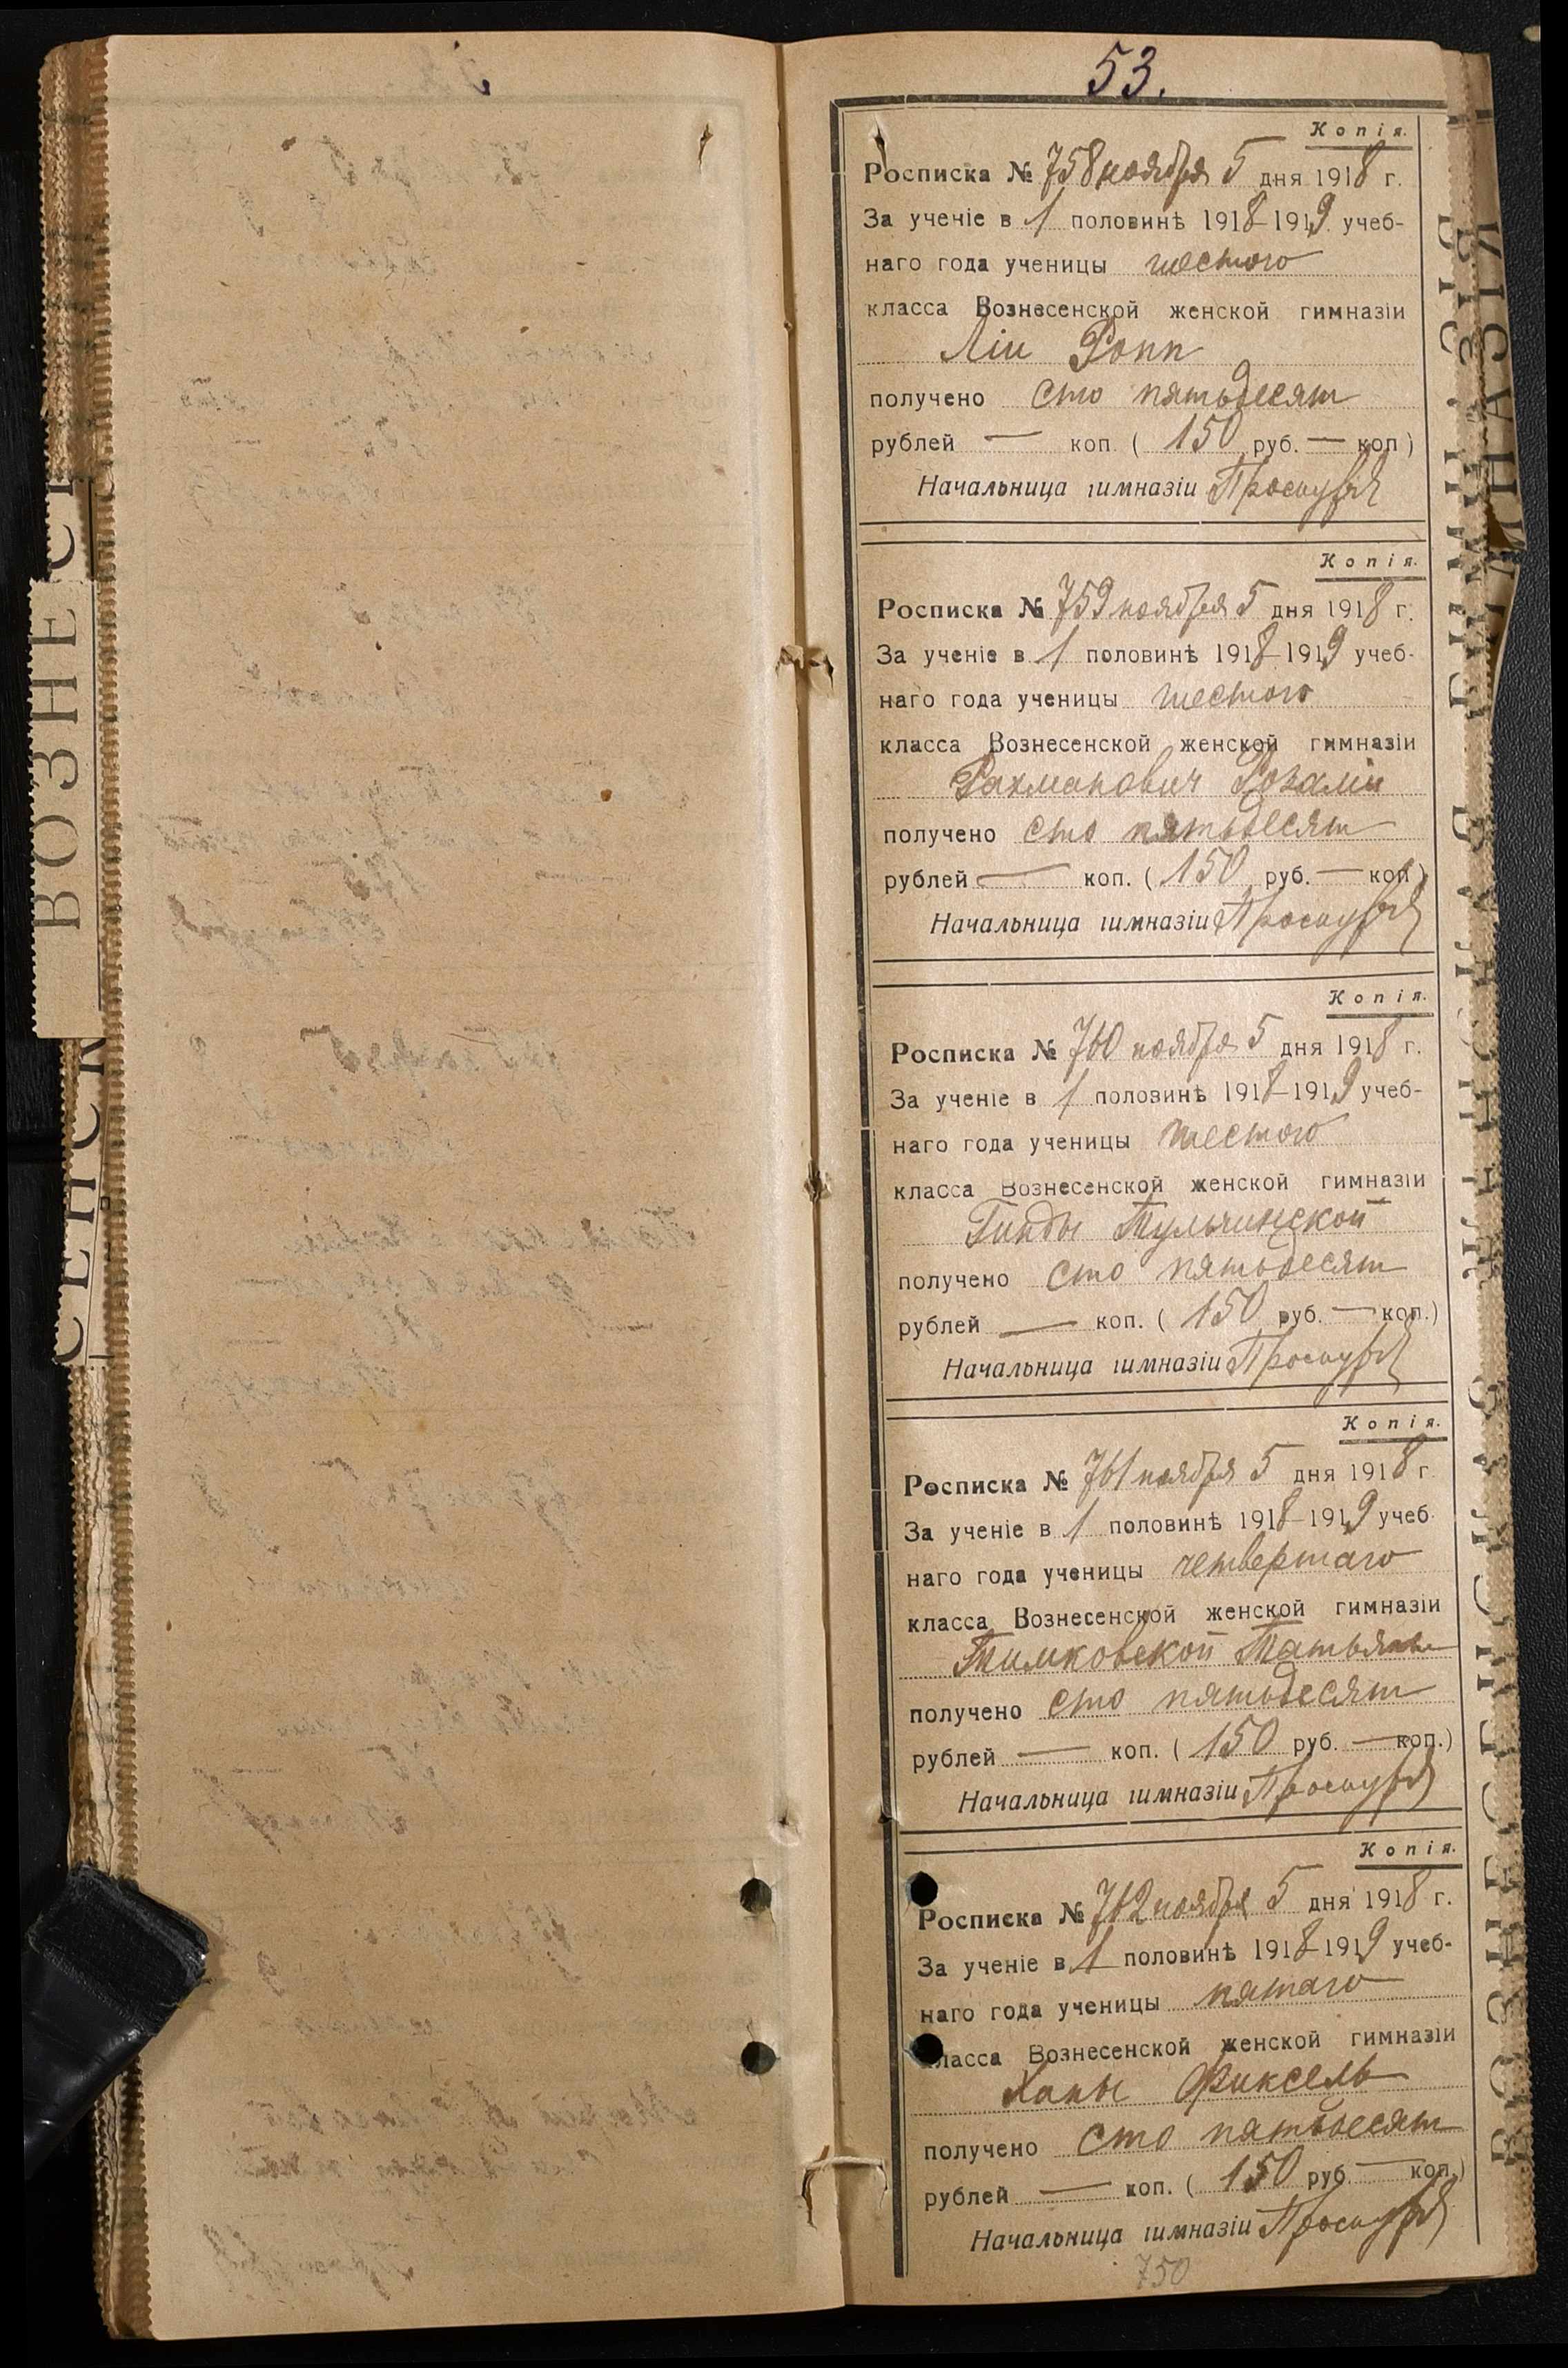 53.
Копія.
Росписка № 758 ноября 5 дня 1918 г.
За ученіе в 1 половинѣ 1918-1919 учеб-
наго года ученицы шестого
класса Вознесенской женской гимназіи
Ліи Ропп
получено сто пятьдесят
рублей — коп. ( 150 руб. — коп )
Начальница гимназіи
Копія.
Росписка № 759 ноября 5 дня 1918 г.
За ученіе в 1 половинѣ 1918-1919 учеб-
наго года ученицы шестого
класса Вознесенской женской гимназіи
Рахманович Розаліи
получено сто пятьдесят
рублей — коп. ( 150 руб. — коп )
Начальница гимназіи
Копія.
Росписка № 760 ноября 5 дня 1918 г.
За ученіе в 1 половинѣ 1918-1919 учеб-
наго года ученицы шестого
класса Вознесенской женской гимназіи
Гинды Тульчинской
получено сто пятьдесят
рублей — коп. ( 150 руб. — коп.)
Начальница гимназіи
Копія.
Росписка № 761 ноября 5 дня 1918 г
За ученіе в 1 половинѣ 1918-1919 учеб-
наго года ученицы четвертаго
класса Вознесенской женской гимназіи
Тимковской Татьяны
получено сто пятьдесят
рублей — коп. ( 150 руб. — коп.)
Начальница гимназіи
Копія.
Росписка № 762 ноября 5 дня 1918 г.
За ученіе в 1 половинѣ 1918-1919 учеб-
наго года ученицы пятаго
класса Вознесенской женской гимназіи
Ханы Фиксель
получено сто пятьдесят
рублей — коп. ( 150 руб. — коп.)
Начальница гимназіи
750
ВОЗНЕ
СЕНСК